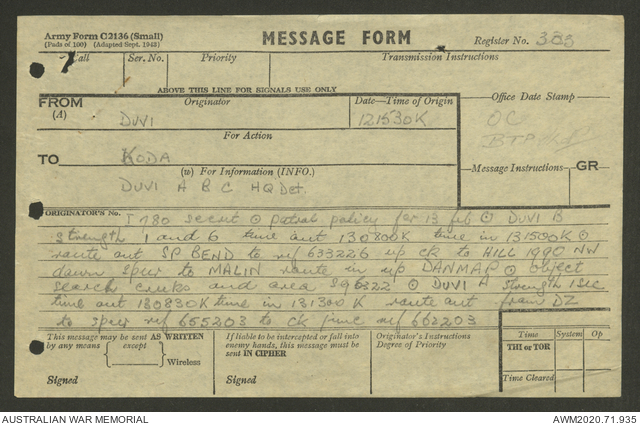 Army Form C2136 (Small)
(Pads of 100) (Adapted Sept. 1943)
MESSAGE FORM
Register No. 303
Call Ser. No. Priority Transmission Instructions
ABOVE THIS LINE FOR SIGNALS USE ONLY
FROM Originator Date—Time of Origin Office Date Stamp
(A) DUVI 121530K OC
For Action
TO KODA
(W) For Information (INFO.) Message Instructions GR
DUVI A B C HQ Det.
ORIGINATOR'S No. T 780 secret ⊙ patrol policy for 13 feb ⊙ DUVI B
strength 1 and 6 time out 130800K time in 131500K ⊙
route out SP BEND to ref 633226 up ck to HILL 1990 NW
down spur to MALIN route in up DANMAP ⊙ object
search creeks and area SQ 6322 ⊙ DUVI A strength 1 sec
time out 130830K time in 131300K route out from DZ
to spur ref 655203 to ck junc ref 662203
This message may be sent AS WRITTEN
by any means except
Wireless
Signed
If liable to be intercepted or fall into
enemy hands, this message must be
sent IN CIPHER
Signed
Originator's Instructions
Degree of Priority
Time System Op
THI or TOR
Time Cleared
AUSTRALIAN WAR MEMORIAL AWM2020.71.935